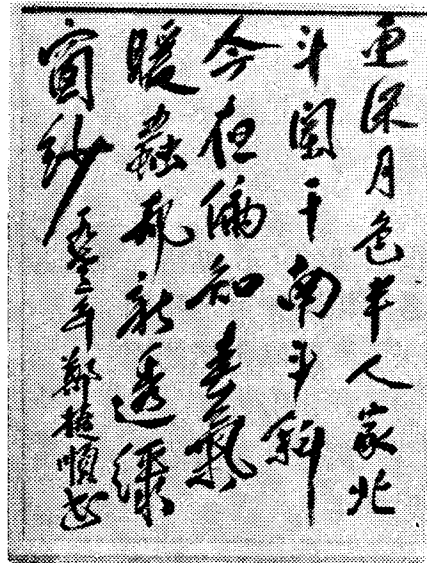 更深月色半人家北
斗闌干南斗斜
今夜偏知春氣
暖蟲聲新透綠
窗紗 年鄭捷順書